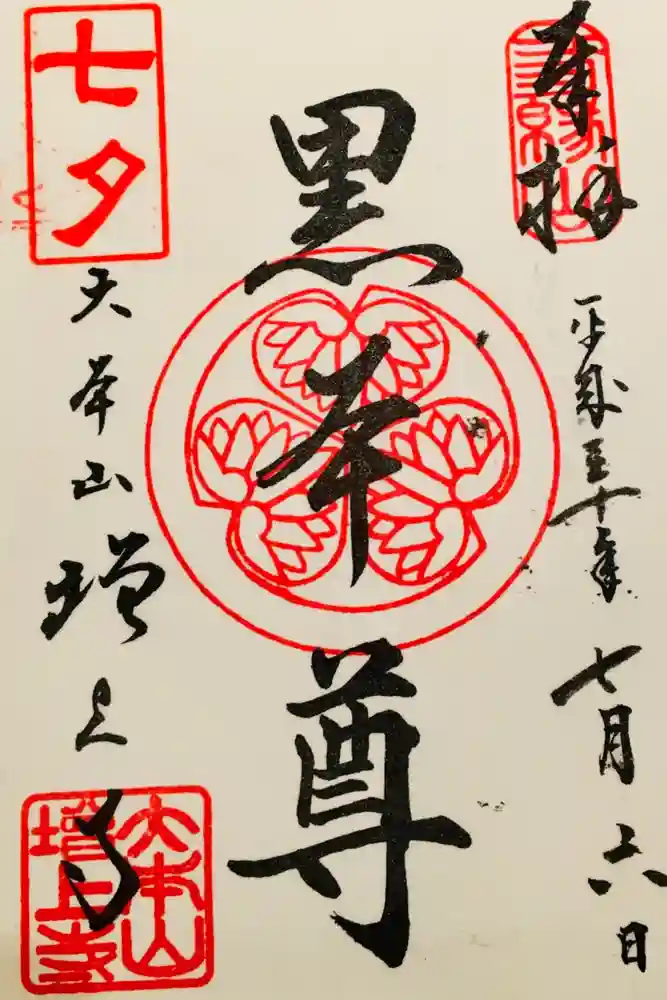 奉拝
三縁山
平成三十年七月六日
黒本尊
七夕
大本山増上寺
大本山
増上寺